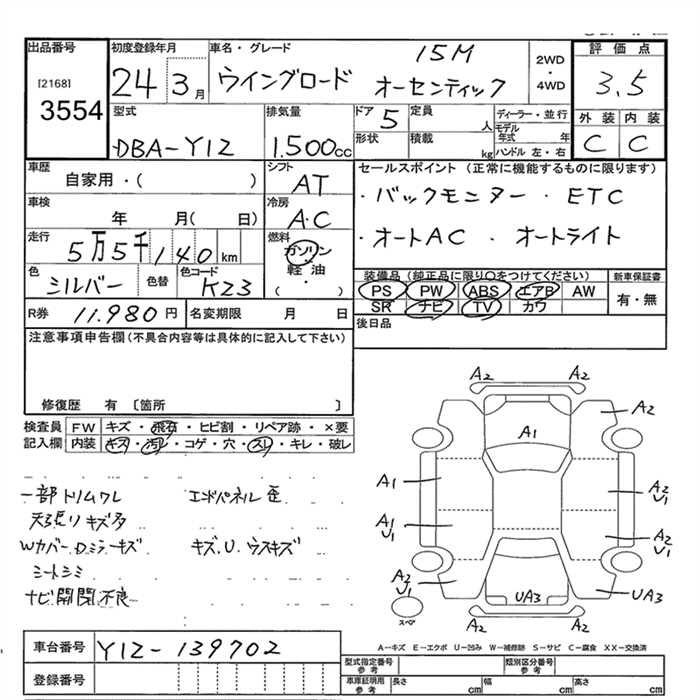 出品番号 初度登録年月 車名・グレード 評価点
[2168] 3554
24 3月 ウイングロード 15M オーセンティック
2WD ・ 4WD
3.5
型式 DBA-Y12
排気量 1.500cc
ドア 5 定員 人
形状 積載 kg
ディーラー・並行
モデル年式 年
ハンドル 左・右
外装 内装
C C
車歴 自家用・( )
シフト AT
セールスポイント (正常に機能するものに限ります)
・バックモニター ・ETC
・オートAC ・オートライト
車検 年 月( 日)
冷房 A・C
走行 5万5千140km
燃料 ガソリン 軽油 ・ ( )
色 シルバー 色替 色コード K23
装備品(純正品に限り○をつけてください) 新車保証書
PS PW ABS エアB AW 有・無
SR ナビ TV カワ
R券 11.980円 名変期限 月 日
後日品
注意事項申告欄(不具合内容等は具体的に記入して下さい)
修復歴 有 〔箇所 〕
検査員 FW キズ・飛石・ヒビ割・リペア跡・×要
記入欄 内装 キズ・汚れ・コゲ・穴・スレ・キレ・破レ
一部トリムワレ エンドパネル歪
天張リキズ多
Wカバー・Dミラーキズ キズ.U.ウスキズ
シートシミ
ナビ開閉不良
A2 A2
A2
A1
A1 A2 U1
A1 U1 A2 U1
A2 U1 UA3 UA3
スペア
A2 A2
A-キズ E-エクボ U-凹み W-補修跡 S-サビ C-腐食 XX-交換済
車台番号 Y12-139702
登録番号
型式指定番号 参考 類別区分番号 参考
車庫証明用 参考 長さ cm 幅 cm 高さ cm